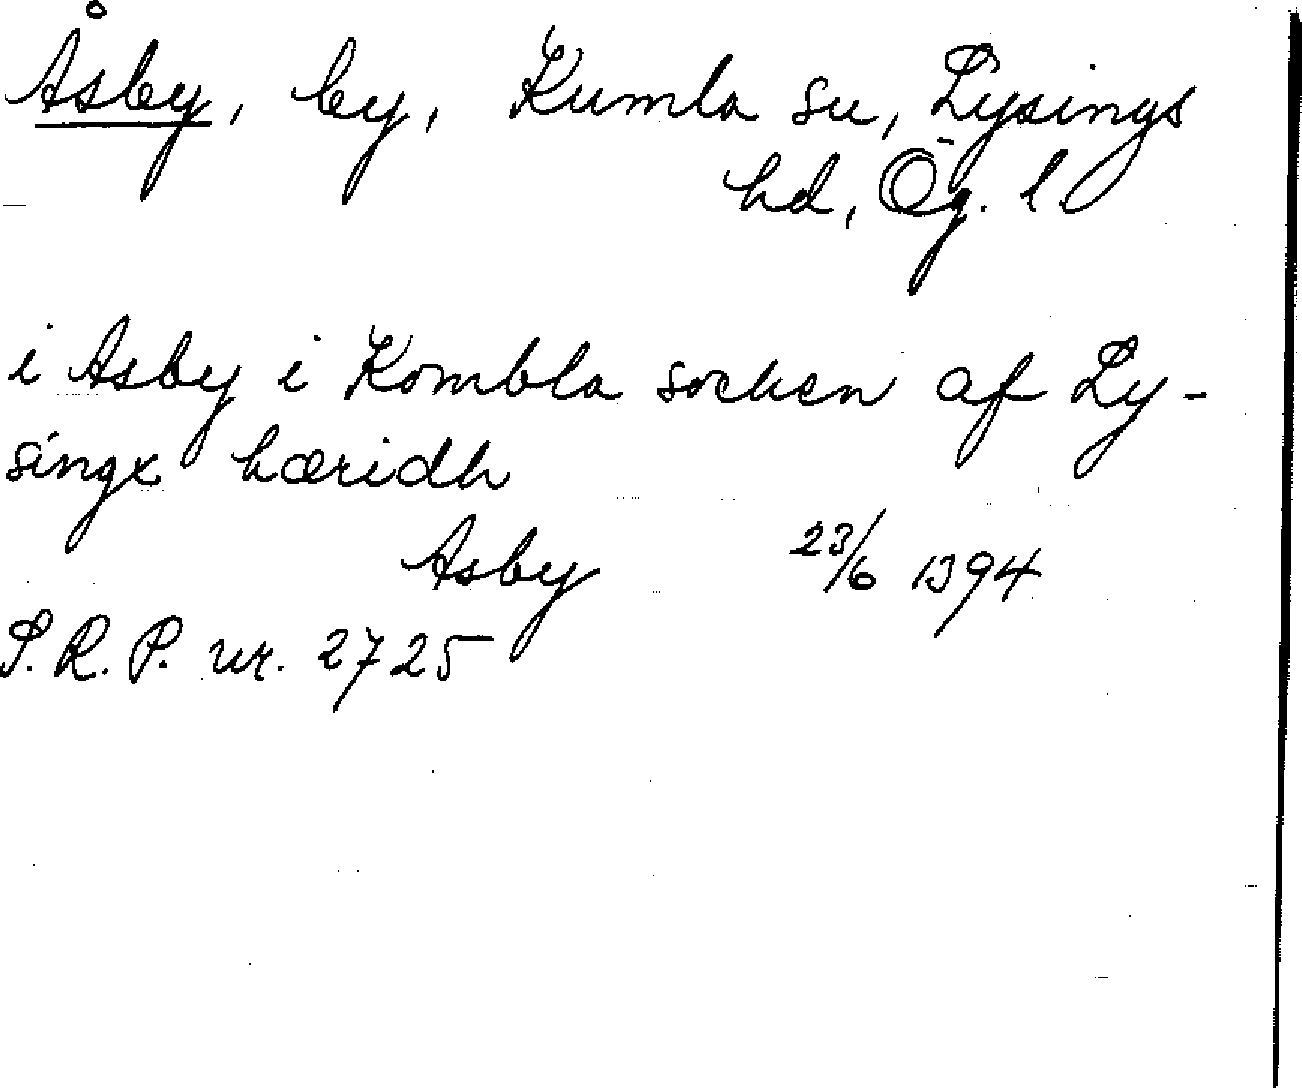 Åsby, by, Kumla sn, Lysings
hd, Ög. l.
i Asby i Kombla socken af Ly-
singx hæridh
Asby 23/6 1394
S.R.P. nr. 2725